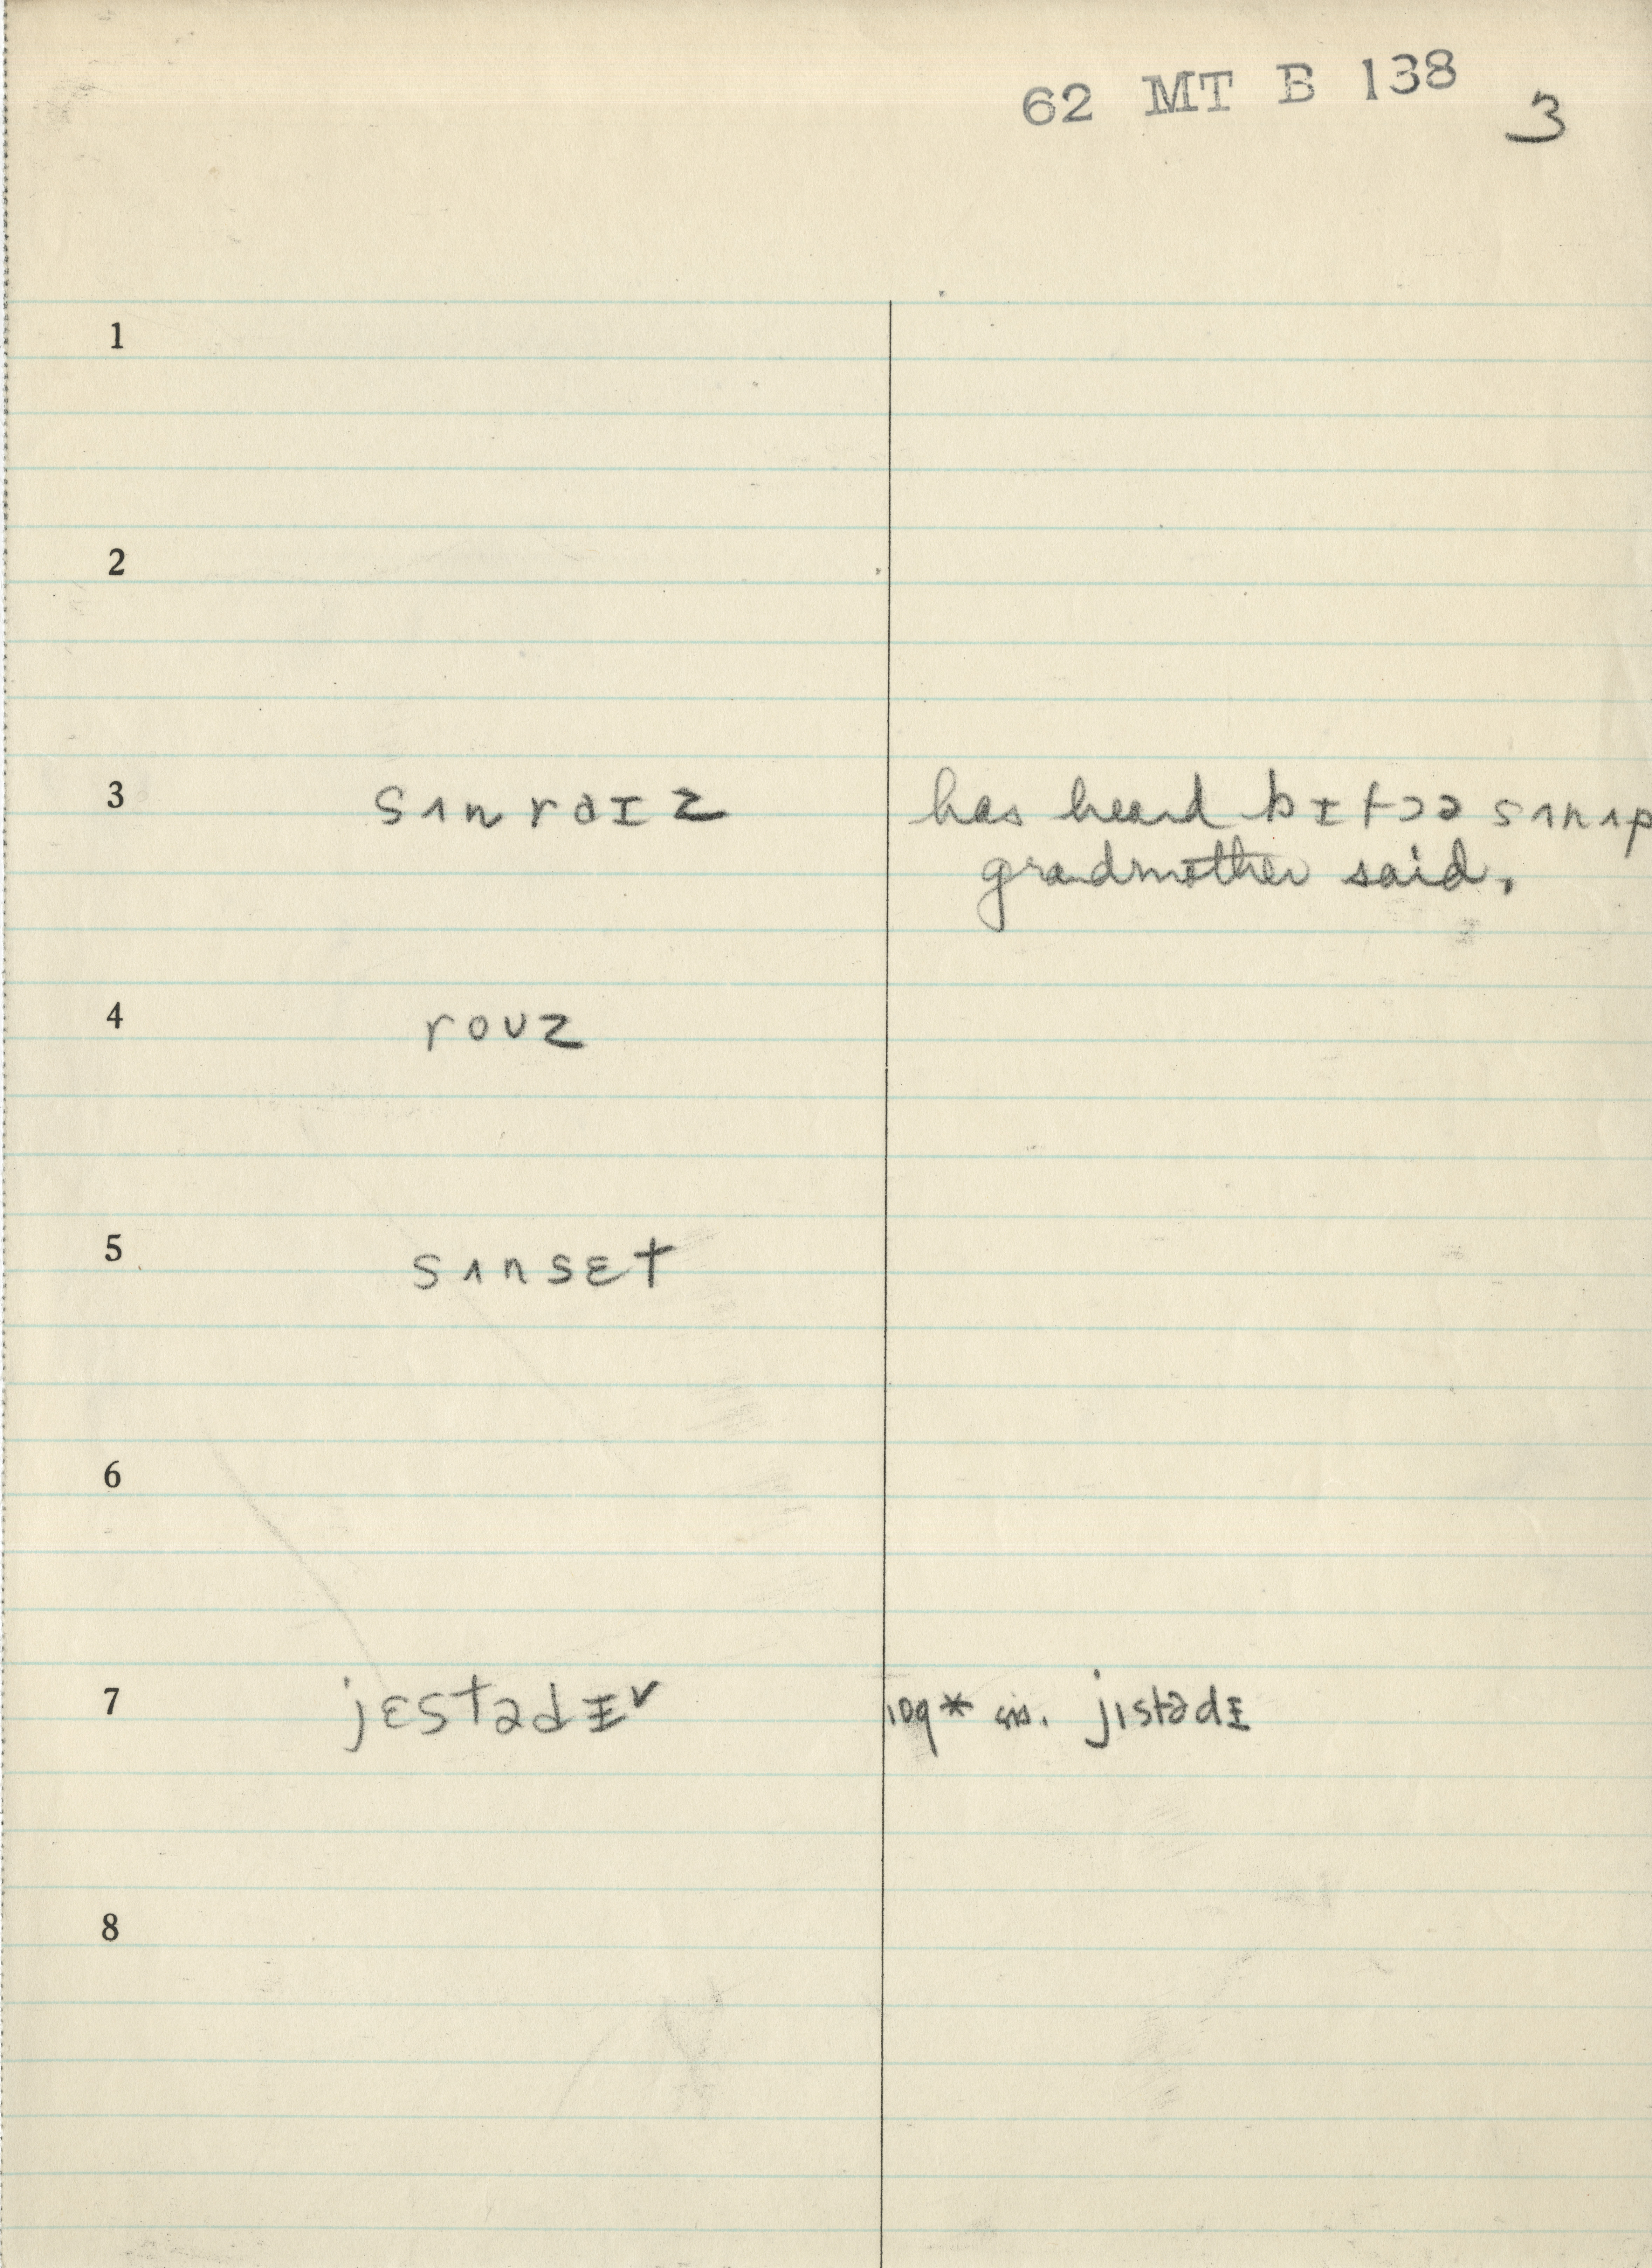 62 MT B 138
3
1
2
3 sʌnraɪz has heard bɪfɔə sʌnʌp
grandmother said.
4 roʊz
5 sʌnsɛt
6
7 jɛstədɪ˅ jɪstədɪ
8